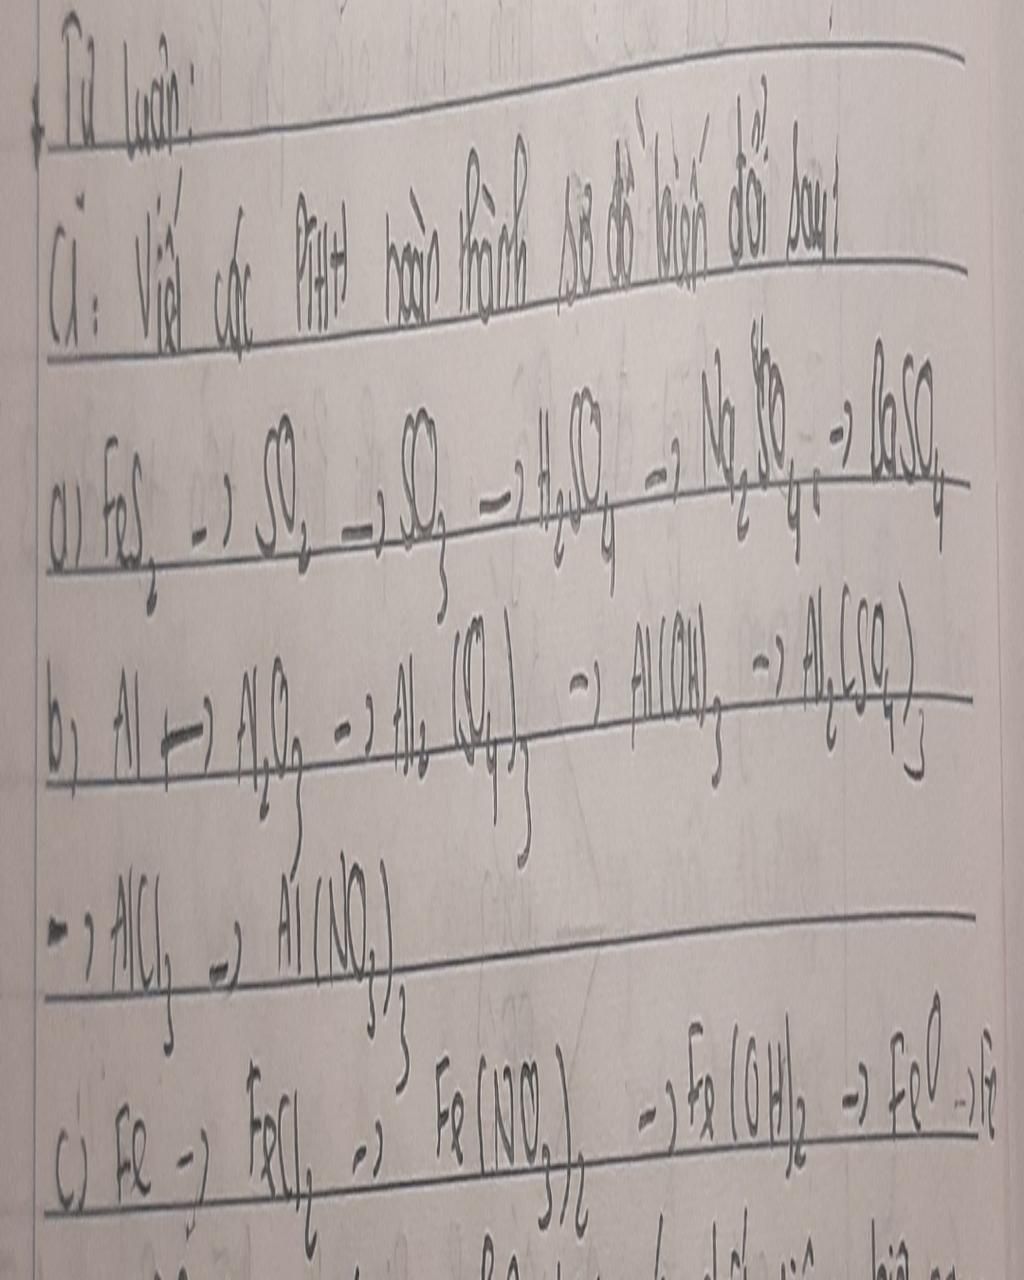 Tự luận:
C1: Viết các PTHH hoàn thành sơ đồ biến đổi sau:
a) FeS₂ -> SO₂ -> SO₃ -> H₂SO₄ -> Na₂SO₄ -> BaSO₄
b) Al -> Al₂O₃ -> Al₂(SO₄)₃ -> Al(OH)₃ -> Al₂(SO₄)₃
-> AlCl₃ -> Al(NO₃)₃
c) Fe -> FeCl₂ -> Fe(NO₃)₂ -> Fe(OH)₂ -> FeO -> Fe